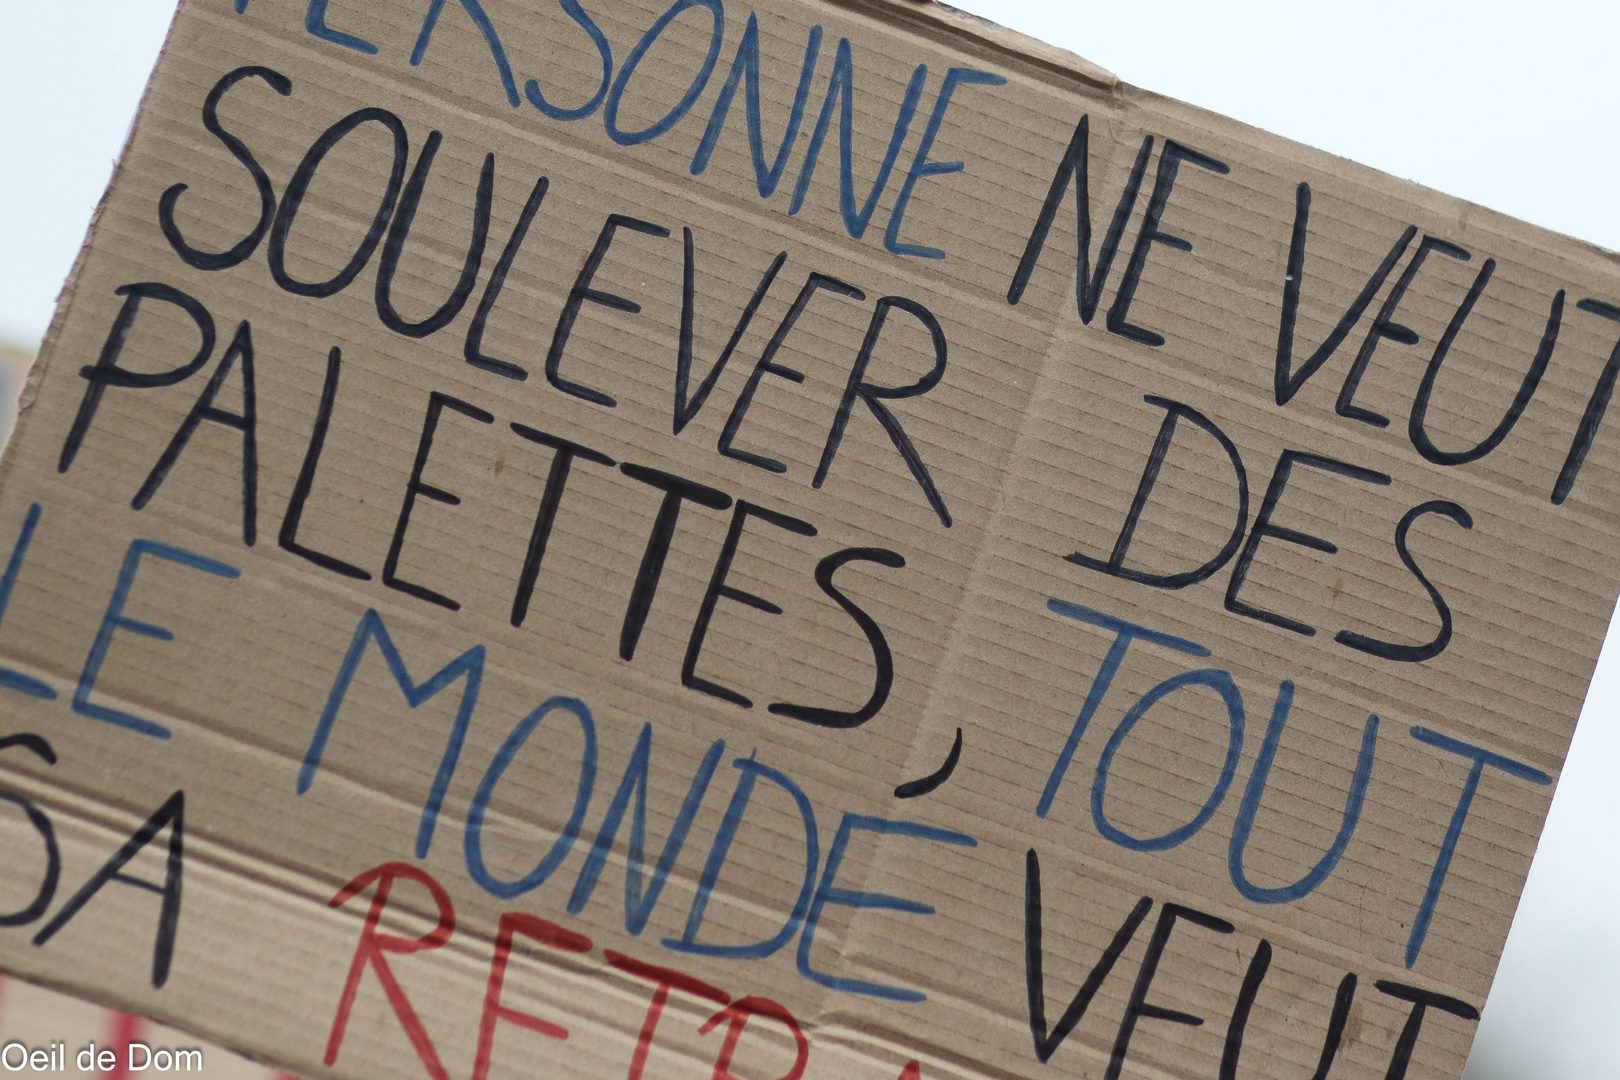 PERSONNE NE VEUT
SOULEVER DES
PALETTES, TOUT
LE MONDE VEUT
SA RETRA
Oeil de Dom